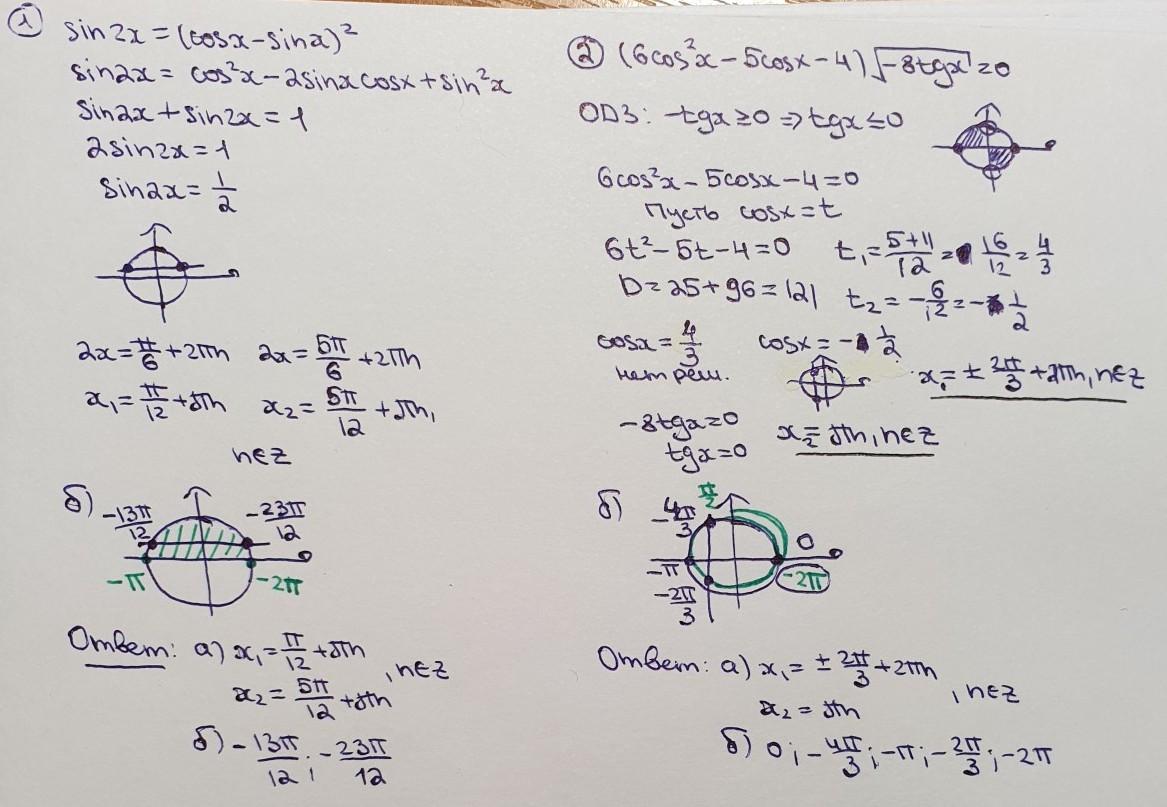 1
sin2x = (cosx - sinx)²
sin2x = cos²x - 2sinxcosx + sin²x
sin2x + sin2x = 1
2sin2x = 1
sin2x = 1/2
2x = π/6 + 2πn 2x = 5π/6 + 2πn
x₁ = π/12 + πn x₂ = 5π/12 + πn,
n∈Z
б) -13π/12 -23π/12
-π -2π
Ответ: а) x₁ = π/12 + πn
x₂ = 5π/12 + πn , n∈Z
б) -13π/12 ; -23π/12
2 (6cos²x - 5cosx - 4)√-8tgx = 0
ОДЗ: -tgx ≥ 0 ⇒ tgx ≤ 0
6cos²x - 5cosx - 4 = 0
Пусть cosx = t
6t² - 5t - 4 = 0 t₁ = 5+11/12 = 16/12 = 4/3
D = 25 + 96 = 121 t₂ = -6/12 = -1/2
cosx = 4/3 cosx = -1/2
нет реш. x₁ = ± 2π/3 + 2πn, n∈Z
-8tgx = 0 x₂ = πn, n∈Z
tgx = 0
б) π/2
-4π/3 0
-π -2π
-2π/3
Ответ: а) x₁ = ± 2π/3 + 2πn
x₂ = πn , n∈Z
б) 0 ; -4π/3 ; -π ; -2π/3 ; -2π